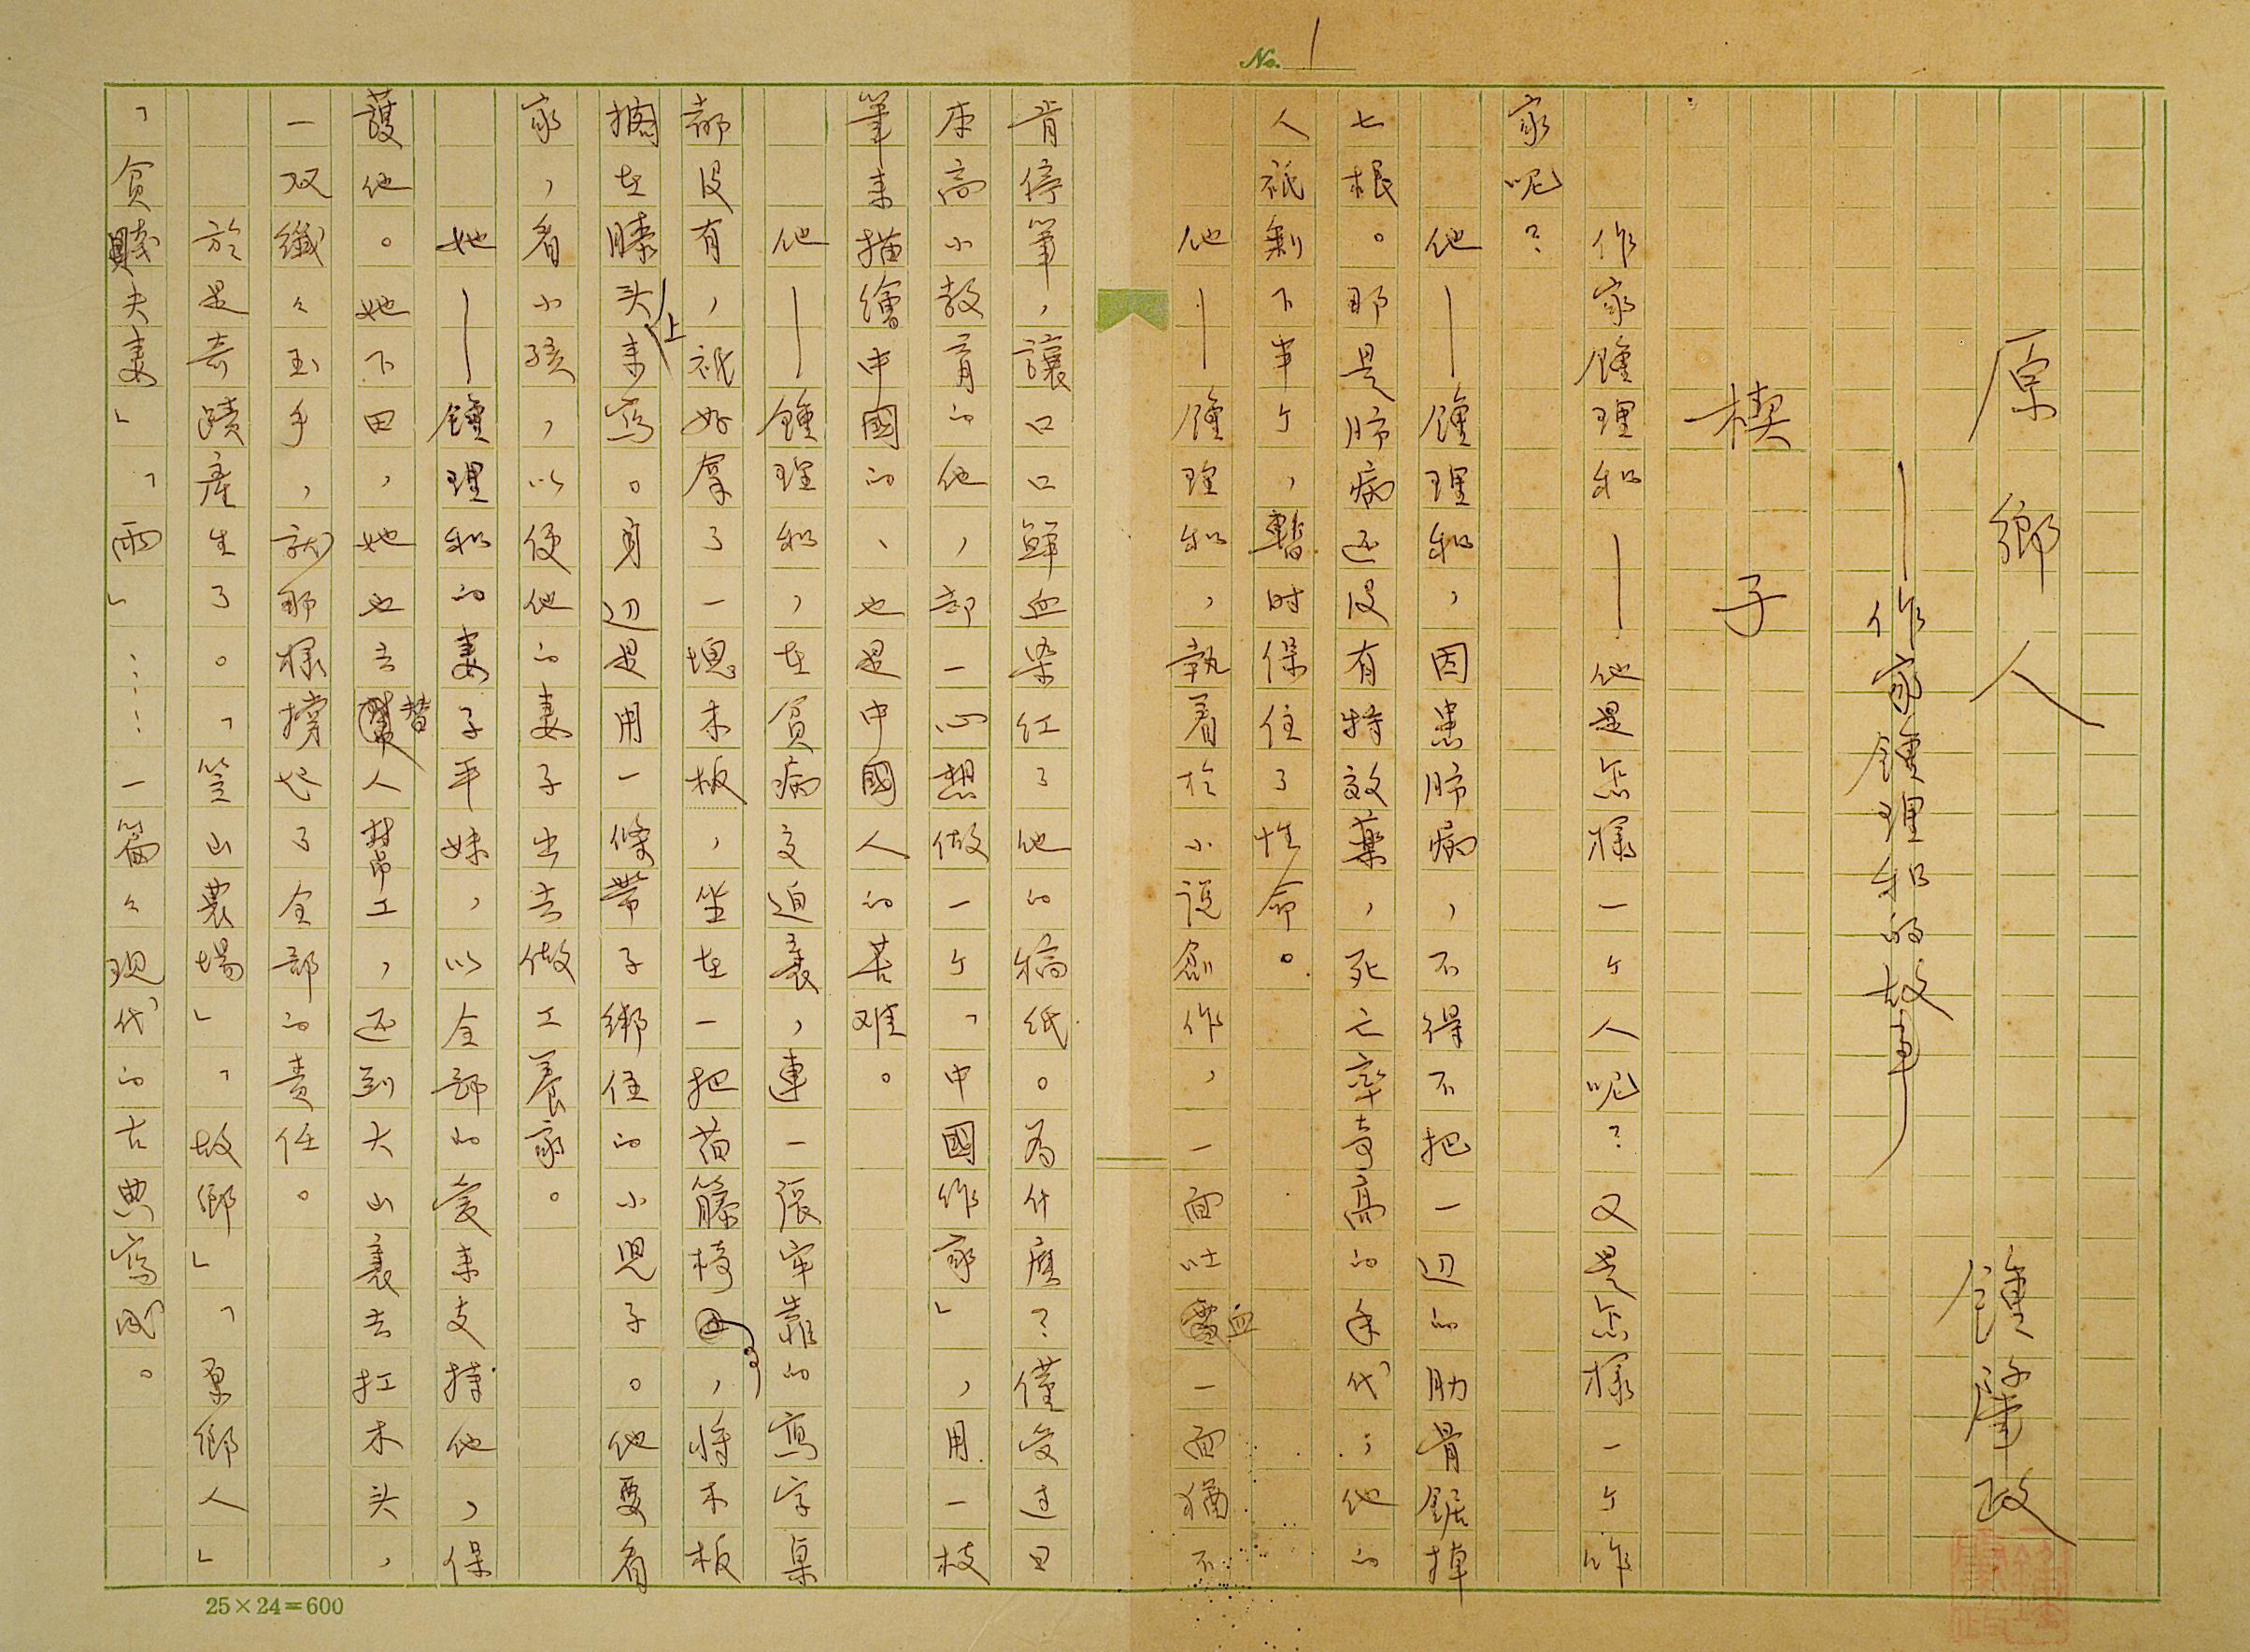 No. 1
原鄉人
——作家鍾理和的故事
鍾肇政
楔子
作家鍾理和——他是怎樣一个人呢？又是怎樣一个作
家呢？
他——鍾理和，因患肺病，不得不把一边的肋骨鋸掉
七根。那是肺病还没有特效藥，死亡率奇高的年代；他的
人祇剩下半个，暫时保住了性命。
他——鍾理和，執着於小説創作，一面吐血一面猶不
肯停筆，讓口口鮮血染红了他的稿纸。為什麼？僅受过日
本高小教育的他，却一心想做一个「中國作家」，用一枝
筆来描繪中國的、也是中國人的苦难。
他——鍾理和，在貧病交迫裏，連一張牢靠的寫字桌
都没有，祇好拿了一塊木板，坐在一把旧籐椅，将木板
擱在膝头上来寫。身边是用一條帶子綁住的小兒子。他要看
家，看小孩，以便他的妻子出去做工養家。
她——鍾理和的妻子平妹，以全部的愛来支持他，保
護他。她下田，她也去替人幫工，还到大山裏去扛木头，
一双纖々玉手，就那樣撐起了全部的責任。
於是奇蹟產生了。「笠山農場」「故鄉」「原鄉人」
「貧賤夫妻」「雨」……一篇々現代的古典寫成。
25×24=600